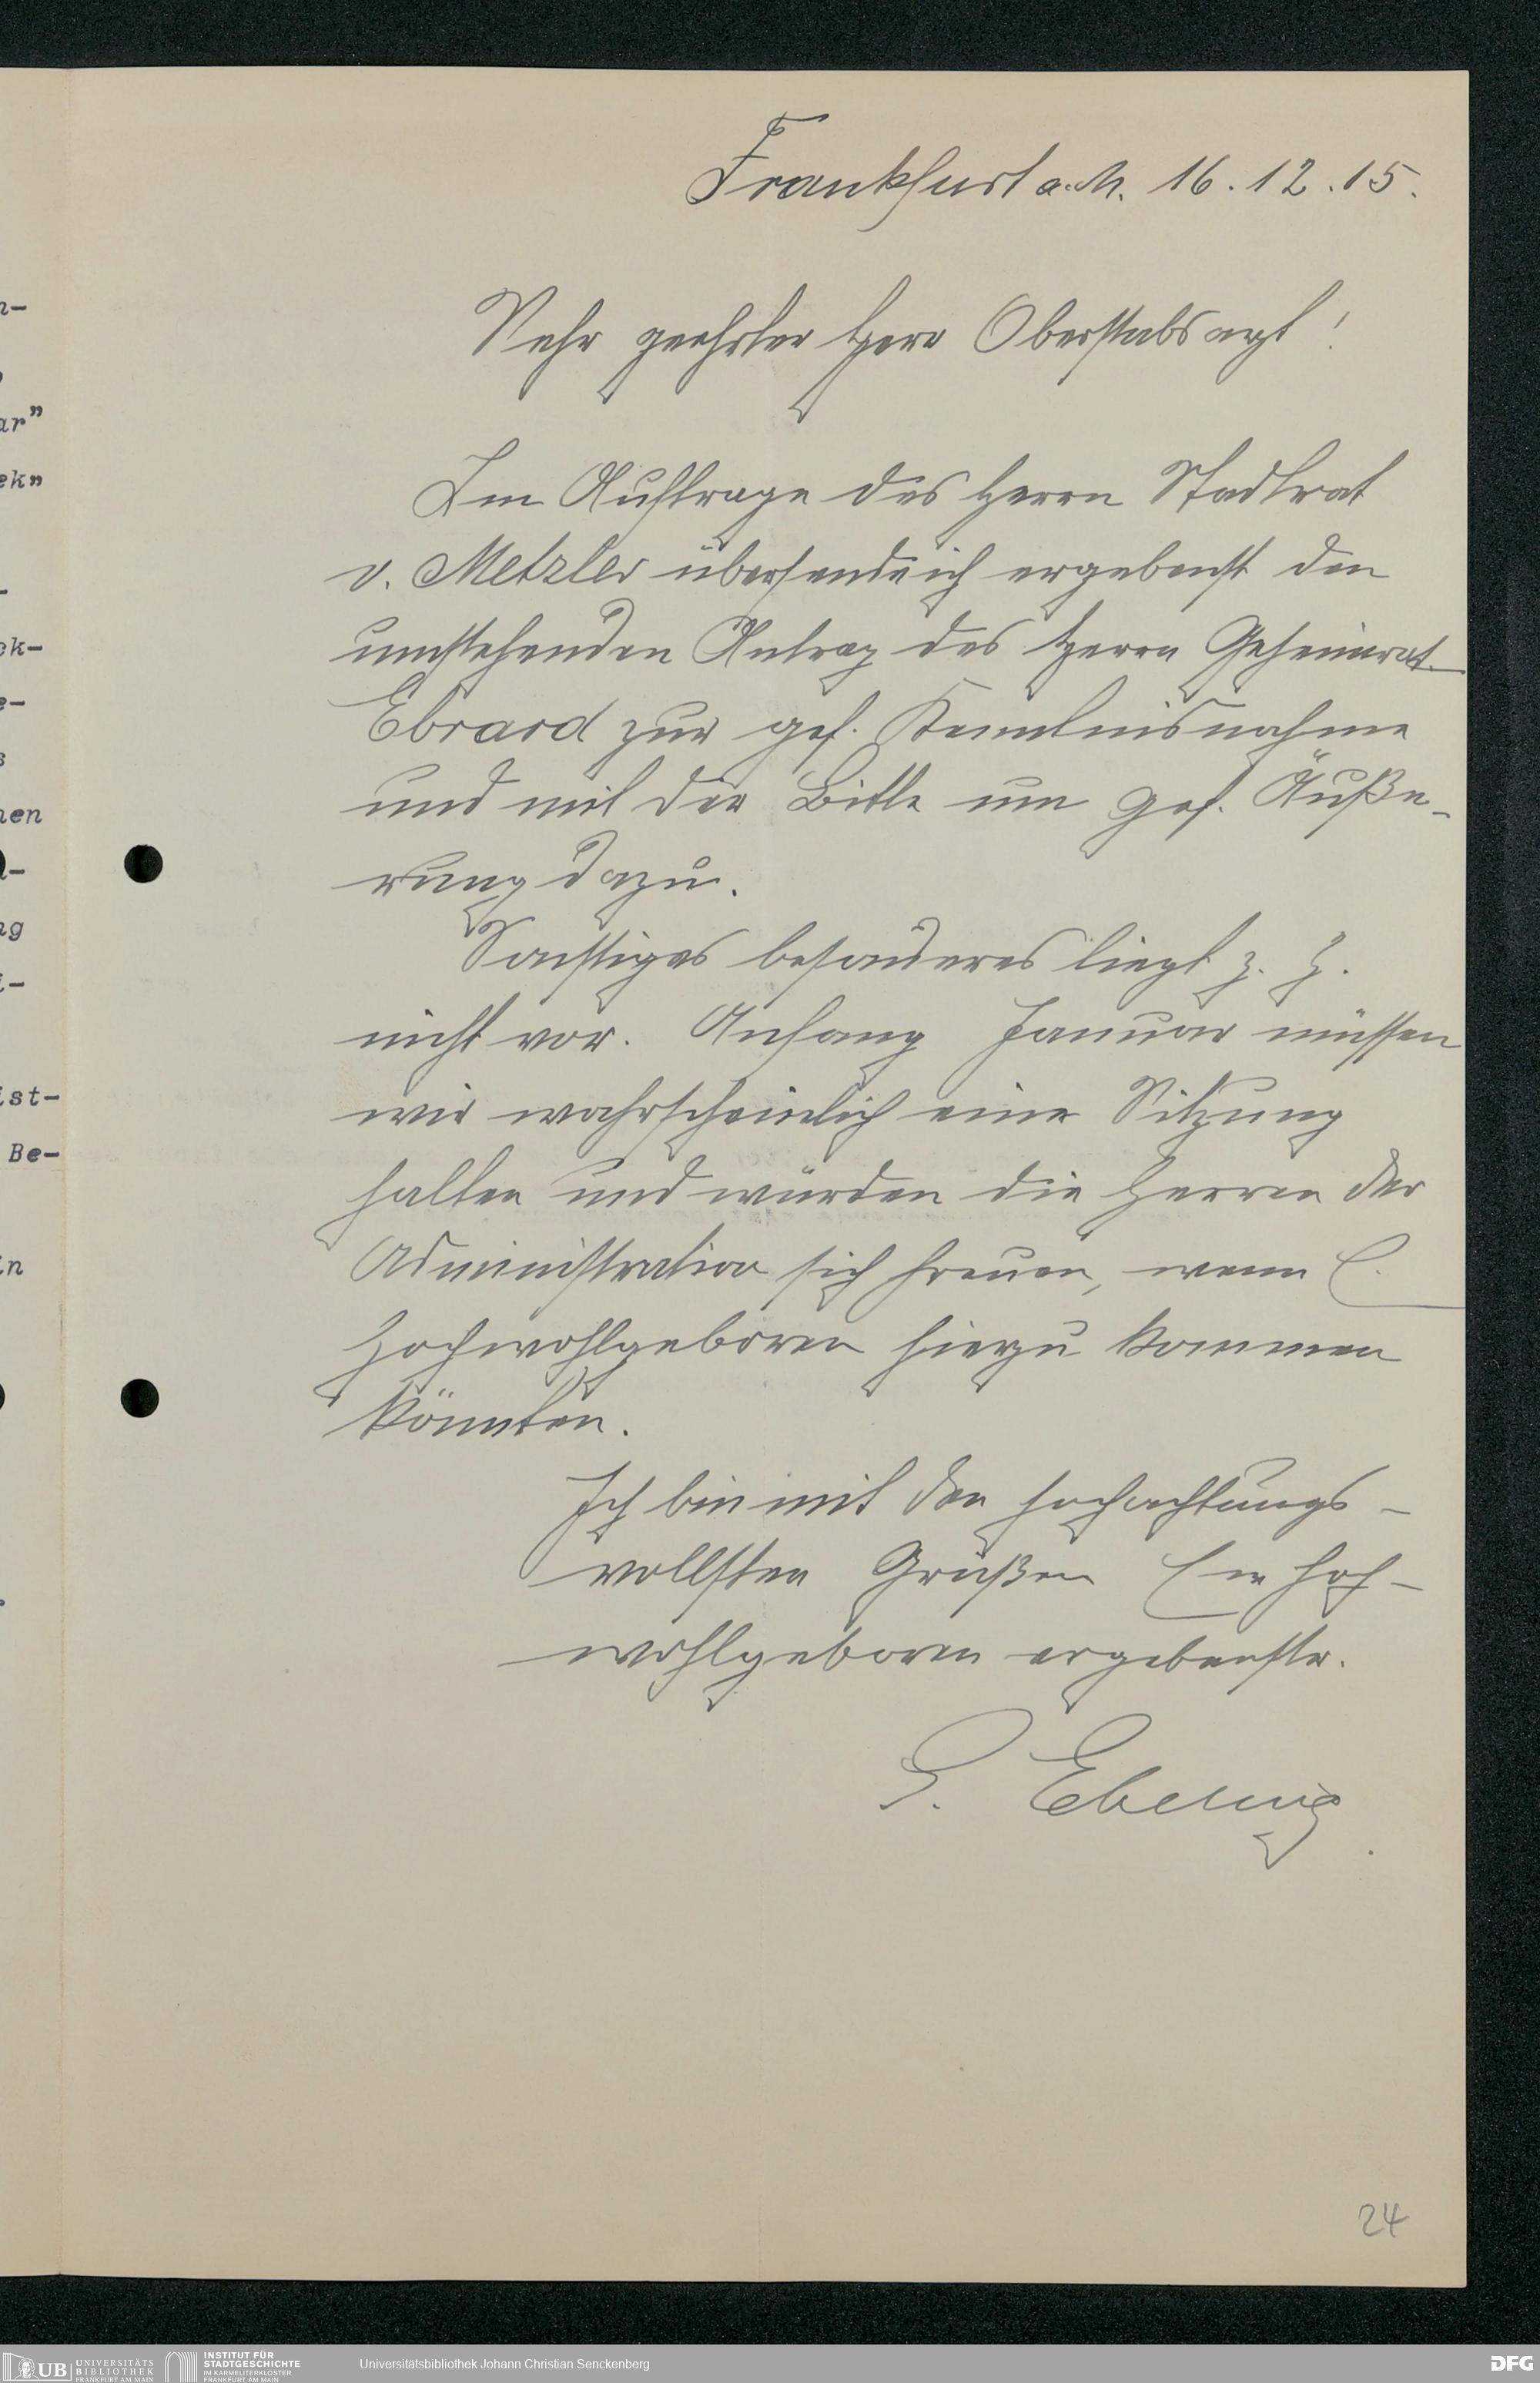 n-
ar"
ek"
-
ok-
e-
s
nen
l-
ng
t-
ist-
Be-
in
Frankfurt a. M. 16. 12. 15.
Sehr geehrter Herr Oberstabsarzt!
Im Auftrage des Herrn Stadtrat
v. Metzler übersende ich ergebenst den
umstehenden Antrag des Herrn Geheimrat
Ebrard zur gef. Kenntnisnahme
und mit der Bitte um gef. Äuße-
rung dazu.
Sonstiges besonderes liegt z. Z.
nicht vor. Anfang Januar müssen
wir wahrscheinlich eine Sitzung
halten und würden die Herren der
Administration sich freuen, wenn E.
Hochwohlgeboren hierzu kommen
könnten.
Ich bin mit den hochachtungs-
vollsten Grüßen Ew Hoch-
wohlgeboren ergebenster.
G. Ebeling
24
UB UNIVERSITÄTS
BIBLIOTHEK
FRANKFURT AM MAIN
INSTITUT FÜR
STADTGESCHICHTE
IM KARMELITERKLOSTER
FRANKFURT AM MAIN
Universitätsbibliothek Johann Christian Senckenberg
DFG